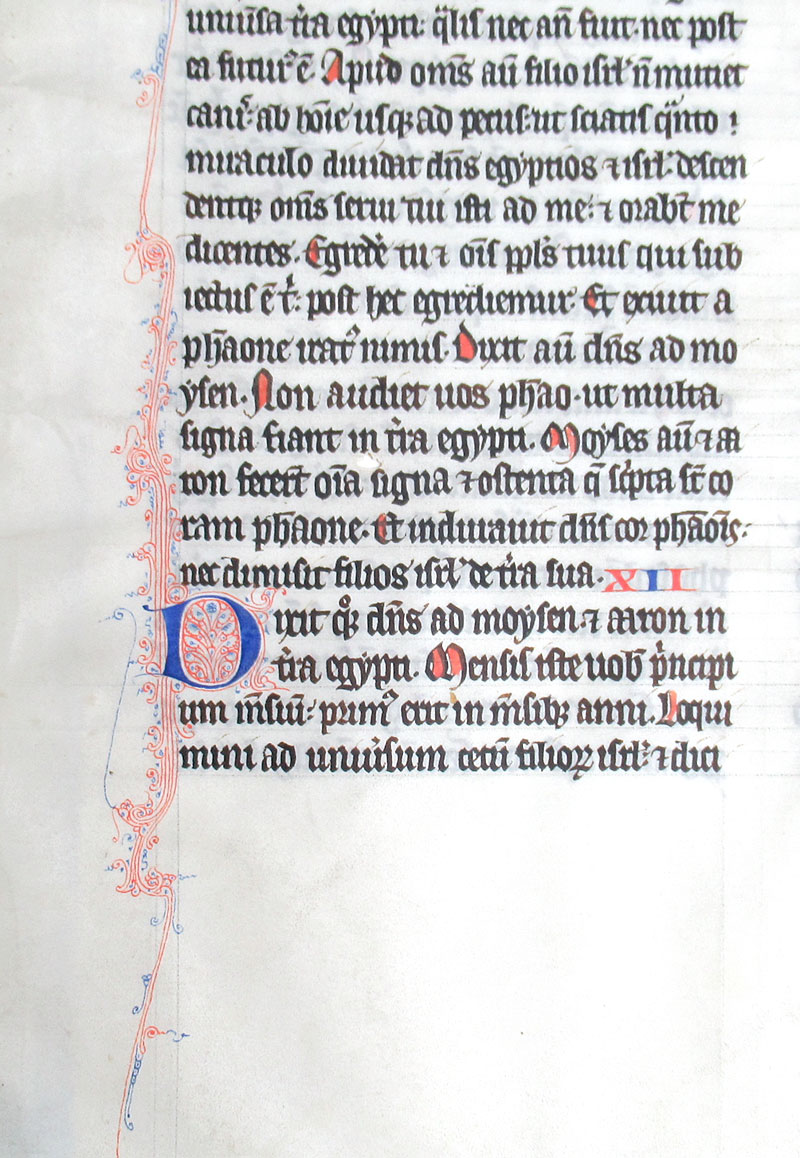 uniu͛sa t͛ra egypti: q̃lis nec an̄ fuit. nec post
ea futur᷒ ē. Apud om̄s aū filio isrl̓ n̄ mutiet
canis̓: ab hōie usqȝ ad pecus: ut sciatis qᷓnto
miraculo diuidat dn̄s egyptios ⁊ isrl̓. descen
dentqȝ om̄s serui tui isti ad me: ⁊ orabt̄ me
dicentes. Egrede͛ tu ⁊ oīs ppl̓s tuus qui sub
iectus ē t̓: post hec egrediemur. Et exiuit a
ph̄aone irat᷒ nimis. Dixit aū dn̄s ad mo
ysen. Non audiet uos ph̄ao. ut multa
signa fiant in t͛ra egypti. Moyses aū ⁊ aa
ron fecer̄t oīa signa ⁊ ostenta q̄ sc͛pta st̄ co
ram ph̄aone. Et indurauit dn̄s cor ph̄aōis:
nec dimisit filios isrl̓ de t͛ra sua. XII
Dixit qȝ dn̄s ad moysen ⁊ aaron in
t͛ra egypti. Mensis iste uob̄ p͛ncipi
um m̄siū: prim᷒ erit in m̄sibȝ anni. Loqui
mini ad uniu͛sum cetū filioꝝ isrl̓: ⁊ dici